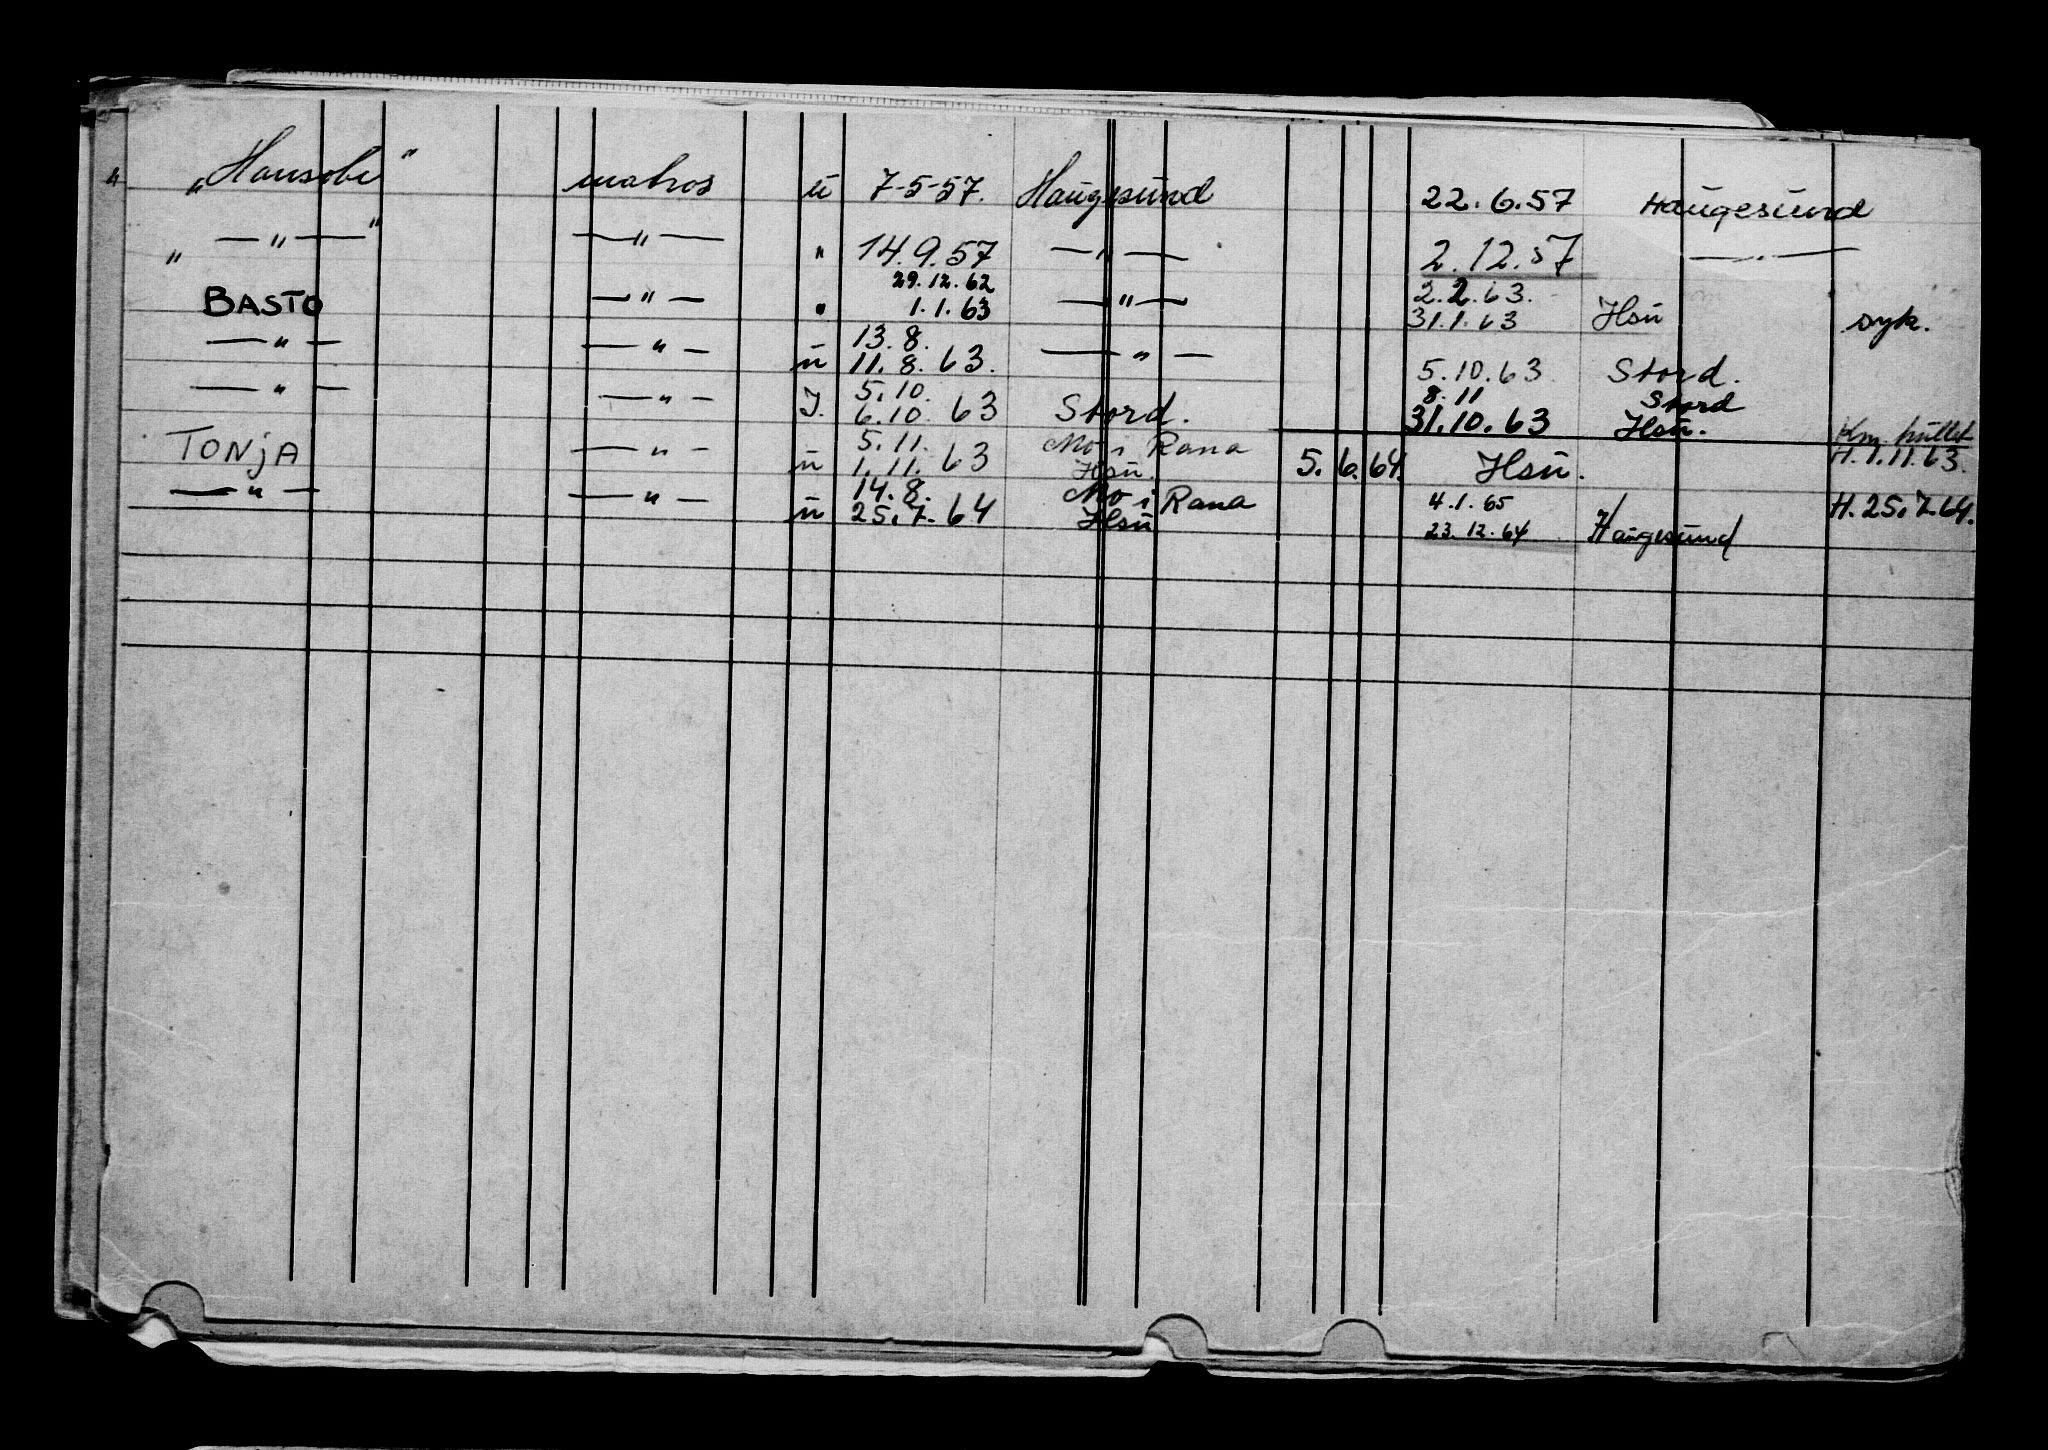 4 „Hansobe" matros u 7-5-57. Haugesund 22.6.57 Haugesund
" —"—" —"— " 14.9.57 —"— 2.12.57 —"—
29.12.62 2.2.63.
BASTO —"— " 1.1.63 —"— 31.1.63 Hsu syk.
13.8.
—"— —"— u 11.8.63. —"— 5.10.63 Stord.
5.10. 8.11 Stord
—"— —"— J. 6.10.63 Stord. 31.10.63 Hsu.
5.11. Mo i Rana Km. hullet
TONjA —"— u 1.11.63 Hsu. 5.6.64. Hsu. H.1.11.63.
14.8. Mo i Rana 4.1.65 H.25.7.64.
—"— —"— u 25.7.64 Hsu 23.12.64 Haugesund